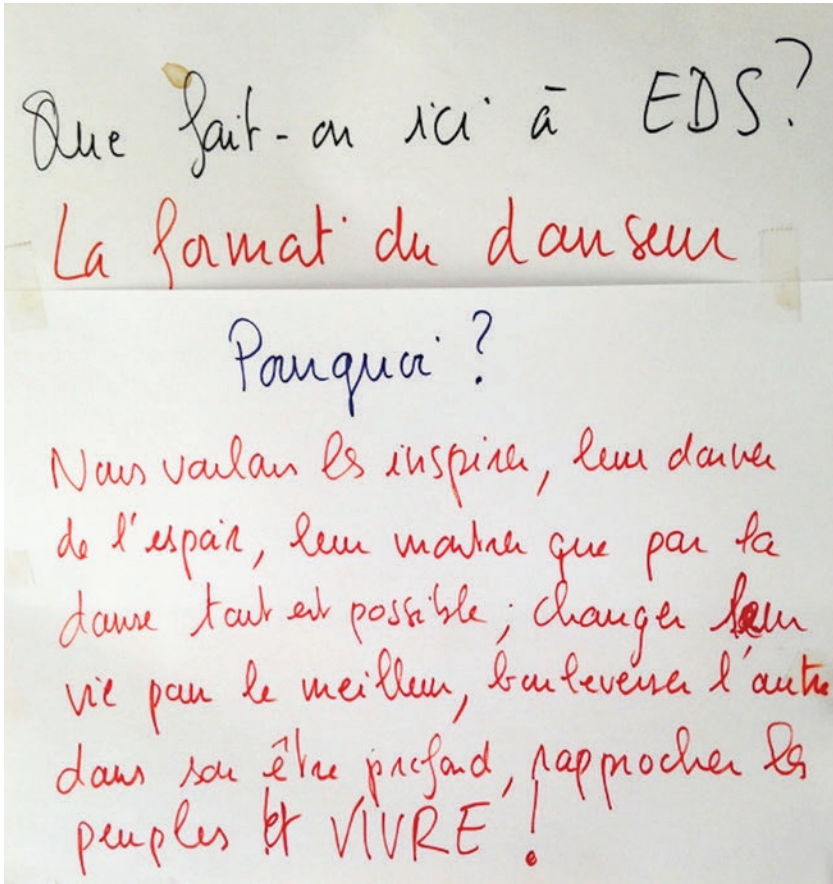 Que fait-on ici à EDS?
La format° du danseur
Pourquoi?
Nous voulons les inspirer, leur donner
de l'espoir, leur montrer que par la
danse tout est possible; changer leur
vie pour le meilleur, bouleverser l'autre
dans son être profond, rapprocher les
peuples et VIVRE!